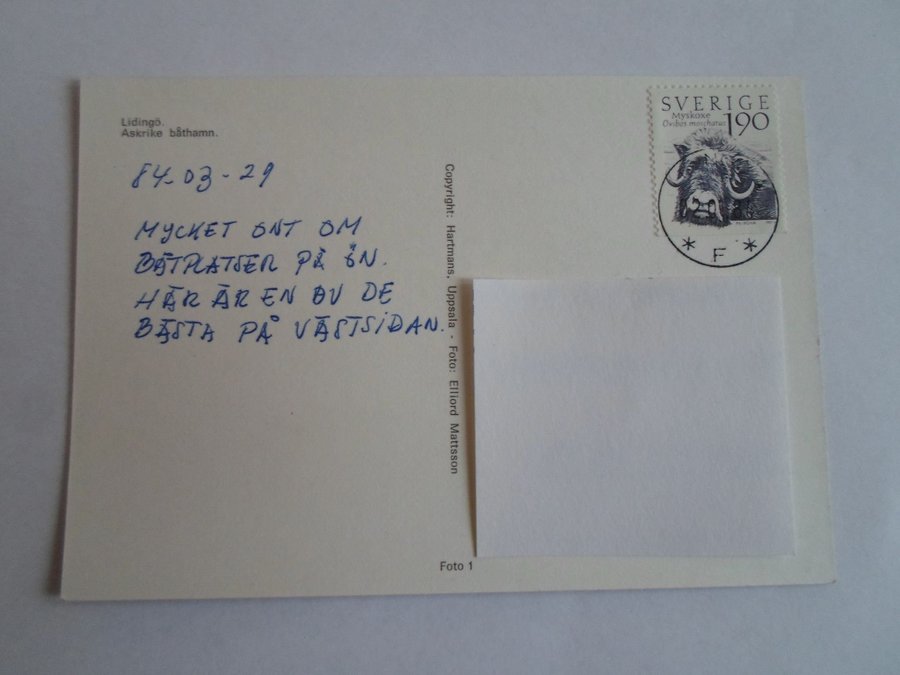 Lidingö.
Askrike båthamn.
84-03-29
MYCKET ONT OM
BÅTPLATSER PÅ ÖN.
HÄR ÄR EN AV DE
BÄSTA PÅ VÄSTSIDAN.
Copyright: Hartmans, Uppsala - Foto: Elliord Mattsson
Foto 1
SVERIGE
Myskoxe
Ovibos moschatus
190
* F *